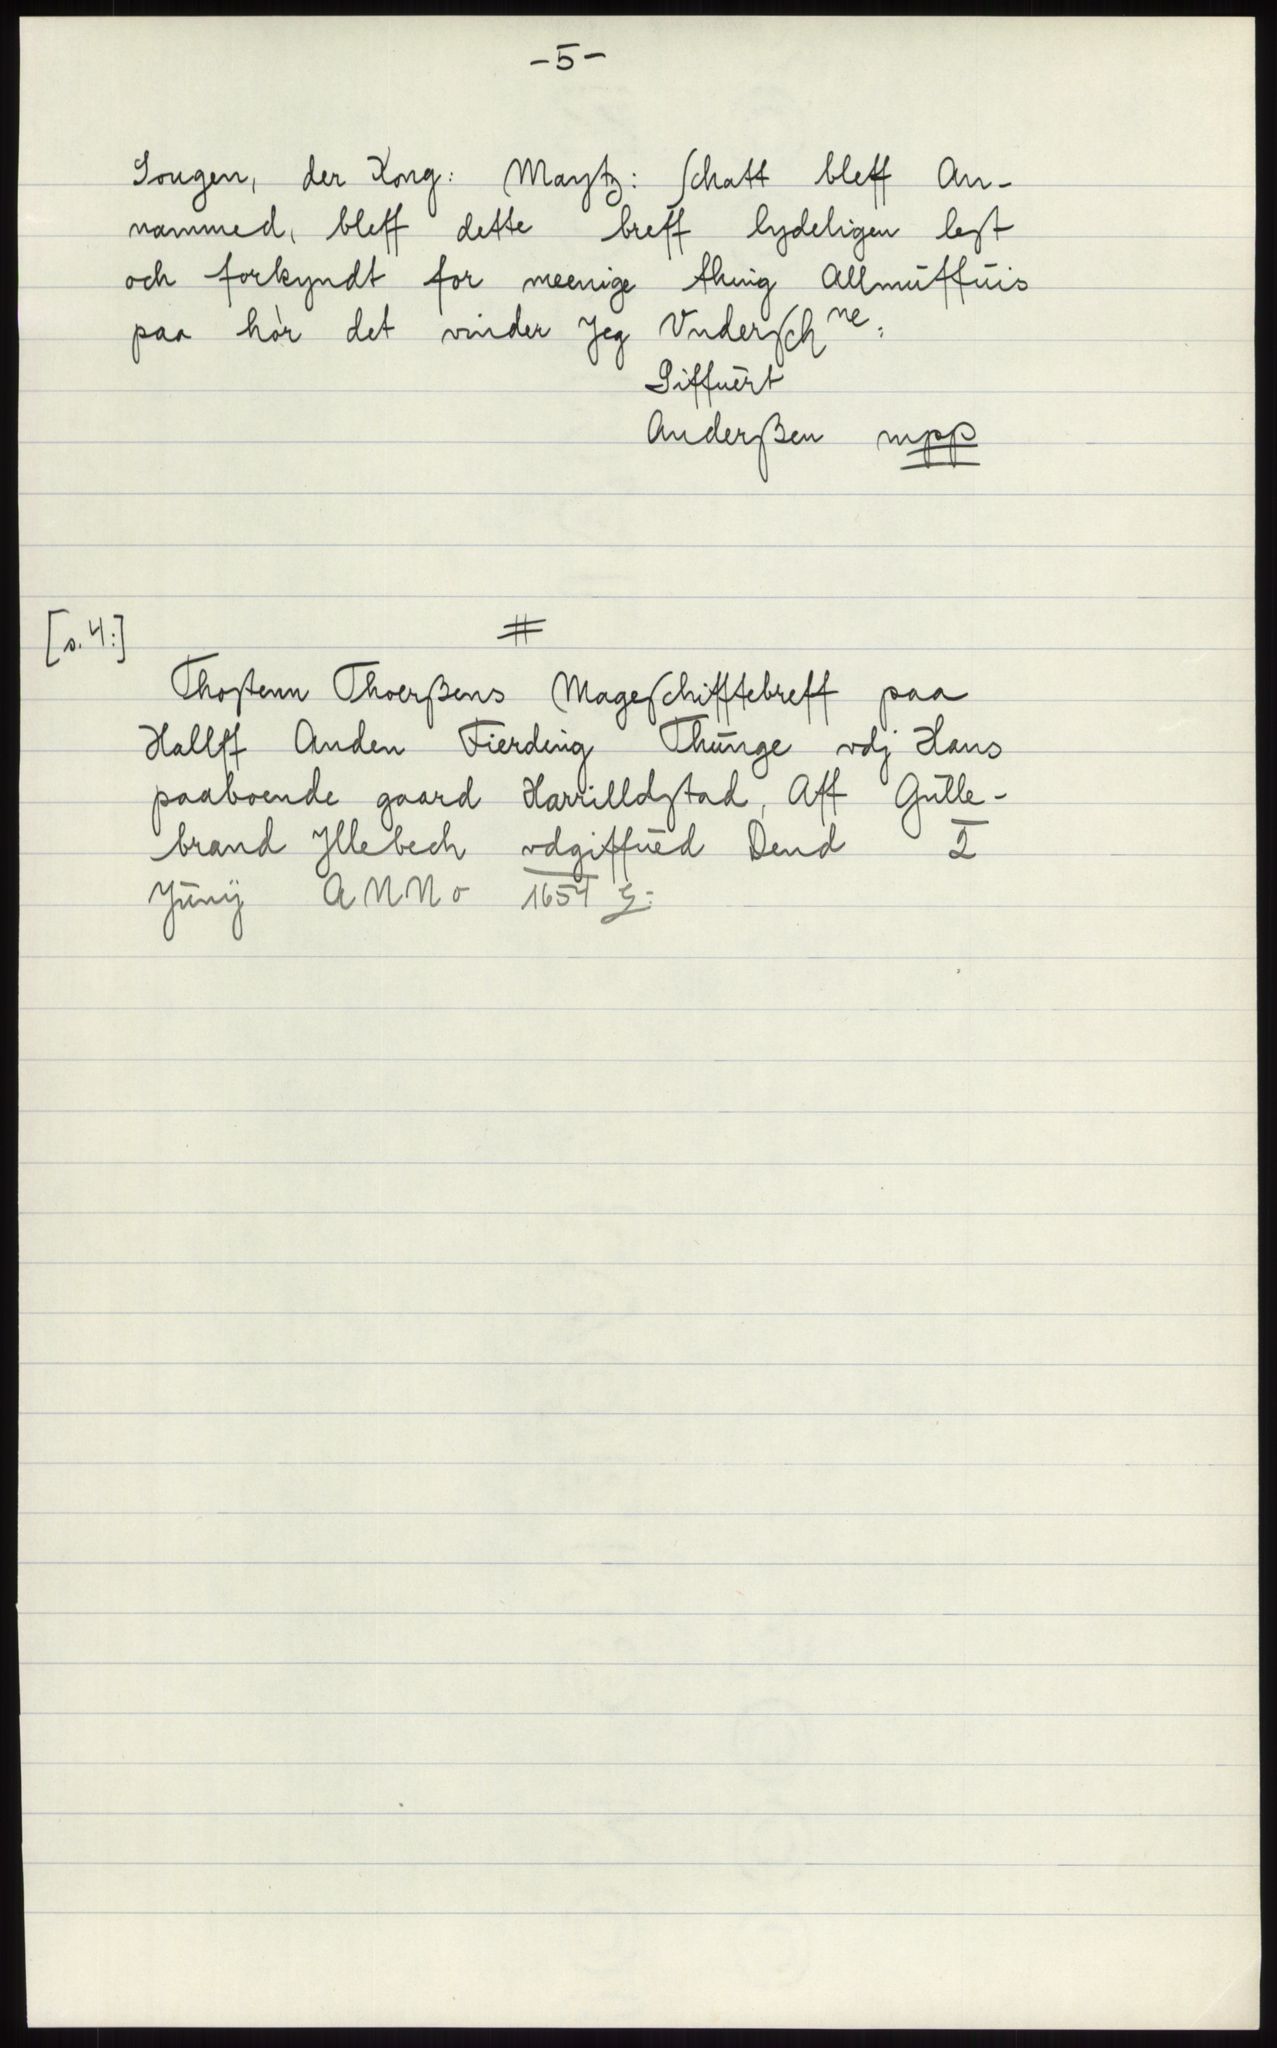 -5-
Sougen, der Kong: Maytz: Schatt bleff An-
nammed, bleff dette breff lydeligen lest
och forkyndt for meenige thing Allmuffuis
paa hör det vinder Jeg Undersch ne:
Siffuert
Anderßen mpp
[s. 4:]
#
Thostenn Thoerßens Mageschifftebreff paa
Hallff Anden Fierding Thunge vdj Hans
paaboende gaard Harrilldstad, Aff Gulle-
brand Jllebech vdgiffued Dend 2
Junij ANNo 1654